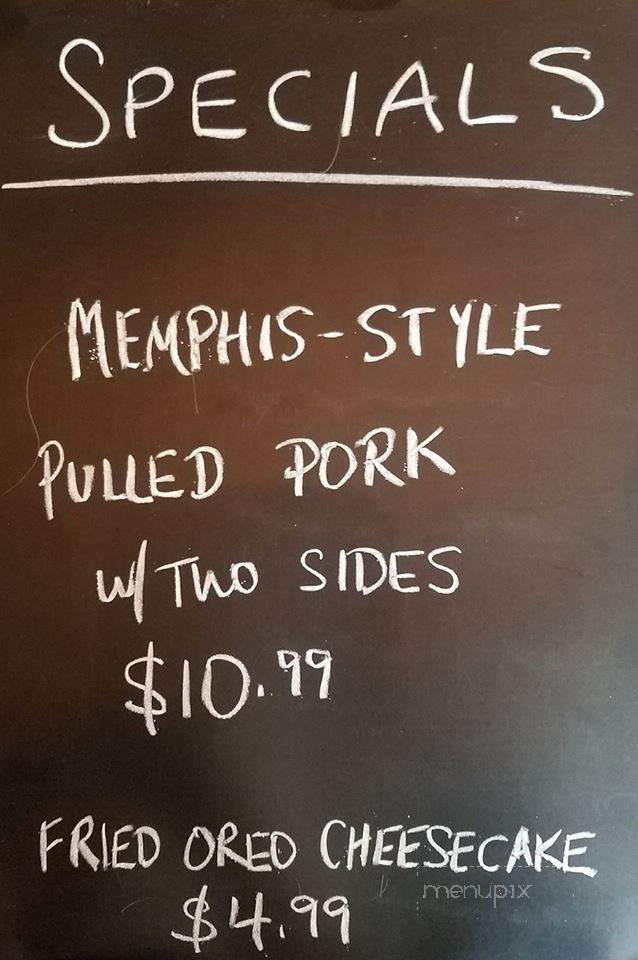 SPECIALS
MEMPHIS-STYLE
PULLED PORK
W/ TWO SIDES
$10.99
FRIED OREO CHEESECAKE
menupix
$4.99